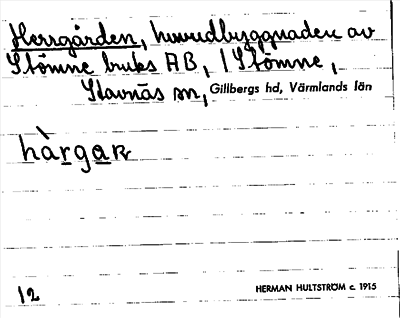 Herrgården, huvudbyggnaden av
Stömne bruks AB, i Stömne,
Stavnäs sn, Gillbergs hd, Värmlands län
hàrgaʀ
12
HERMAN HULTSTRÖM c. 1915